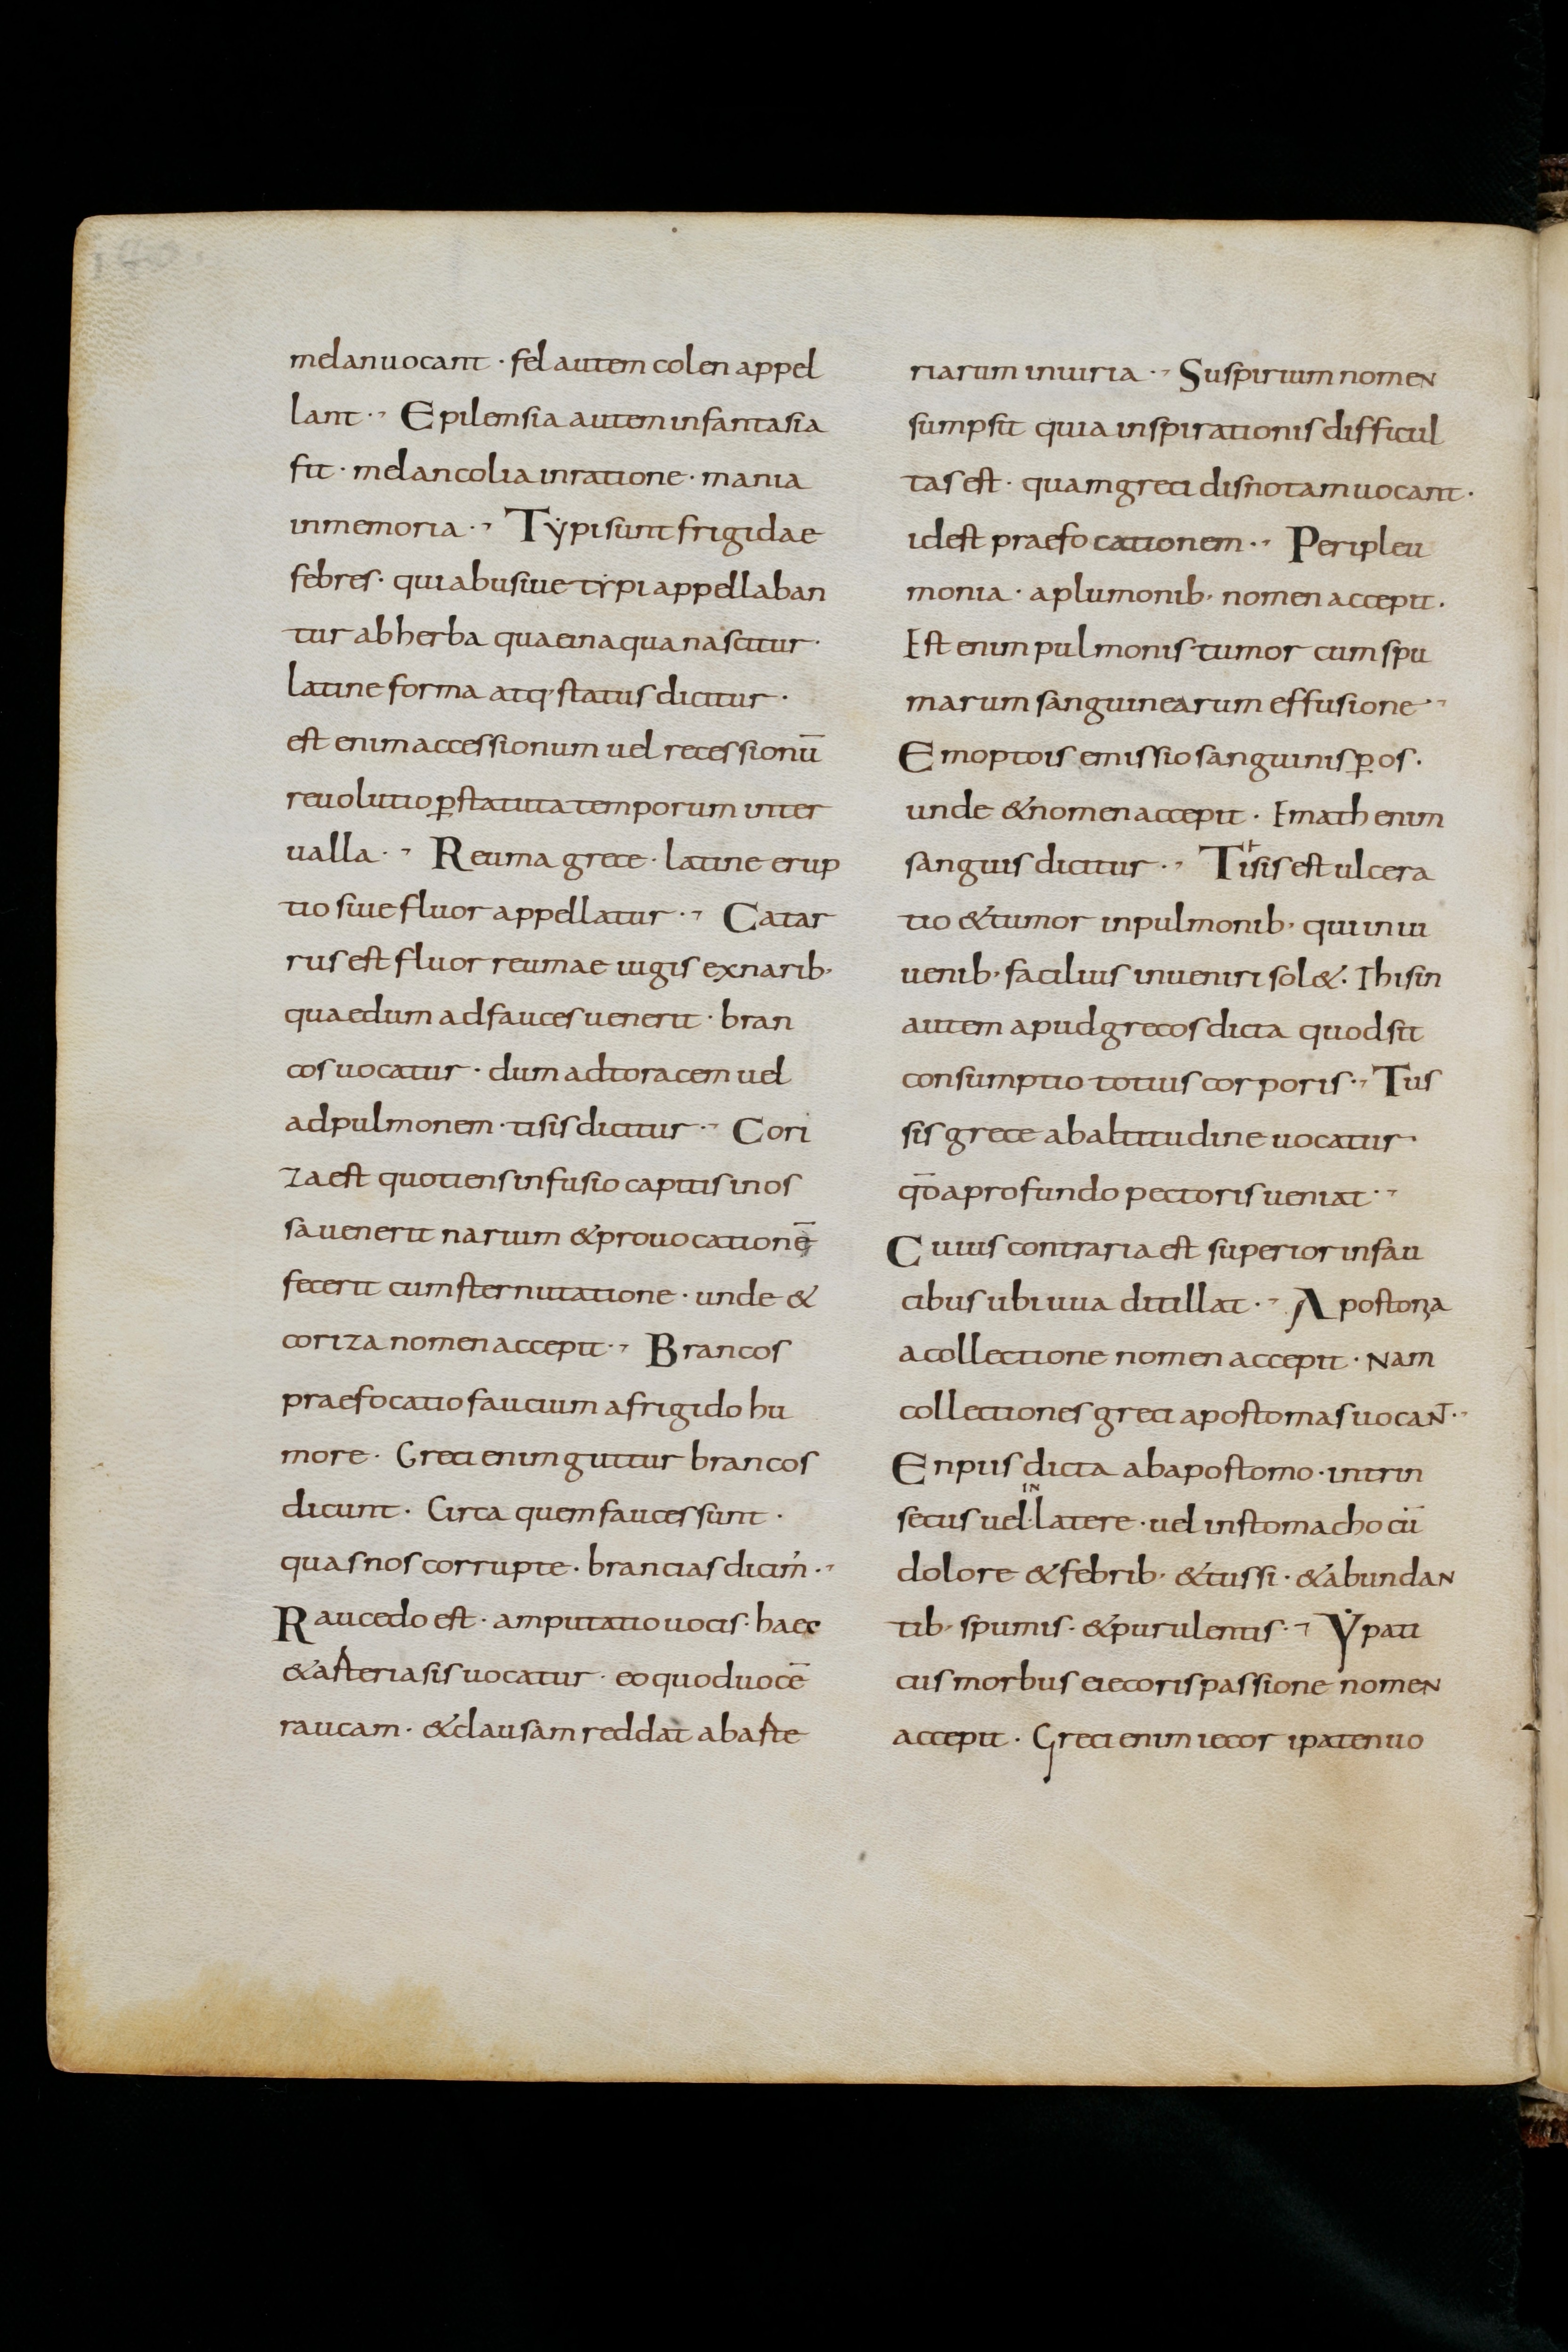 melanuocant · fel autem colen appel
lant ·⁊ Epilemsia autem infantasia
fit · melancolia inratione · mania
inmemoria ·⁊ Tẏpi sunt frigidae
febres · qui abusiue tẏpi appellaban
tur ab herba quae inaqua nascitur ·
latine forma atq· status dicitur ·
est enim accessionum uel recessionū
reuolutio ꝑ statuta temporum inter
ualla ·⁊ Reuma grece · latine erup
tio siue fluor appellatur ·⁊ Catar
rus est fluor reumae iugis exnarib·
quae dum adfauces uenerit · bran
cos uocatur · dum adtoracem uel
adpulmonem · tisis dicitur ·⁊ Cori
za est quotiens infusio capitis inos
sa uenerit narium & prouocationē
fecerit cum sternutatione · unde &
coriza nomen accepit ·⁊ Brancos
praefocatio faucium afrigido hu
more · Greci enim guttur brancos
dicunt · Circa quem fauces sunt ·
quas nos corrupte · brancias dicim̓ ·⁊
Raucedo est · amputatio uocis · haec
& asteriasis uocatur · eo quod uocē
raucam · & clausam reddat abaste
riarum iniuria ·⁊ Suspirium nomeN
sumpsit quia inspirationis difficul
tas est · quam greci disnotam uocant ·
id est praefocationem ·⁊ Peripleu
monia · aplumonib· nomen accepit ·
Est enim pulmonis tumor cum spu
marum sanguinearum effusione ·⁊
Emoptois emissio sanguinis ꝑ os ·
unde & nomen accepit · Emath enim
sanguis dicitur ·⁊ Tisis est ulcera
tio & tumor inpulmonib· qui iniu
uenib· facilius inueniri sol& · Thisin
autem apud grecos dicta quod sit
consumptio totius corporis ·⁊ Tus
sis grece abaltitudine uocatur ·
qđ aprofundo pectoris ueniat ·⁊
Cuius contraria est superior infau
cibus ubi uua ditillat ·⁊ Apostoza
acollectione nomen accepit · Nam
collectiones greci apostomas uocaNT ·⁊
Enpiis dicta abapostomo · intrin
IN
secus uel · latere · uel instomacho cū
dolore & febrib· & tussi · & abundaN
tib· spumis · & purulentis ·⁊ Ẏpati
cus morbus eiecoris passione nomeN
accepit · Greci enim iecor ipaten uo